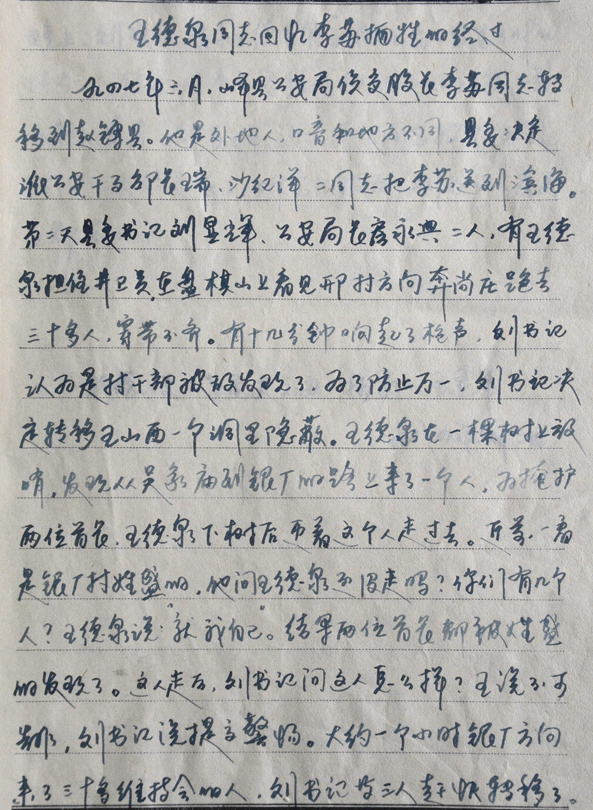 王德泉同志回忆李苏牺牲的经过
一九四七年三月，峄县公安局侦交股长李苏同志转
移到赵镈县。他是外地人，口音和地方不同，县委决定
派公安干部邵长瑞、沙纪洋二同志把李苏送到滨海。
第二天县委书记刘昱辉、公安局长唐永典二人，有王德
泉担任井卫员，在盘棋山上看见邢村方向奔尚庄跑去
三十多人，穿带不齐。有十几分钟响起了枪声，刘书记
认为是村干部被敌发现了，为了防止万一，刘书记决
定转移玉山西一个洞里隐蔽。王德泉在一棵树上放
哨，发现从吴家庙到银厂的路上来了一个人，为掩护
两位首长，王德泉下树后而着这个人走过去。近前一看
是银厂村姓盛的，他问王德泉还没走吗？你们有几个
人？王德泉说“就我自己”。结果两位首长都被姓盛
的发现了。这人走后，刘书记问这人怎么样？王说不可
靠，刘书记说提高警惕。大约一个小时银厂方向
来了三十多维持会的人，刘书记等三人赶快转移了。